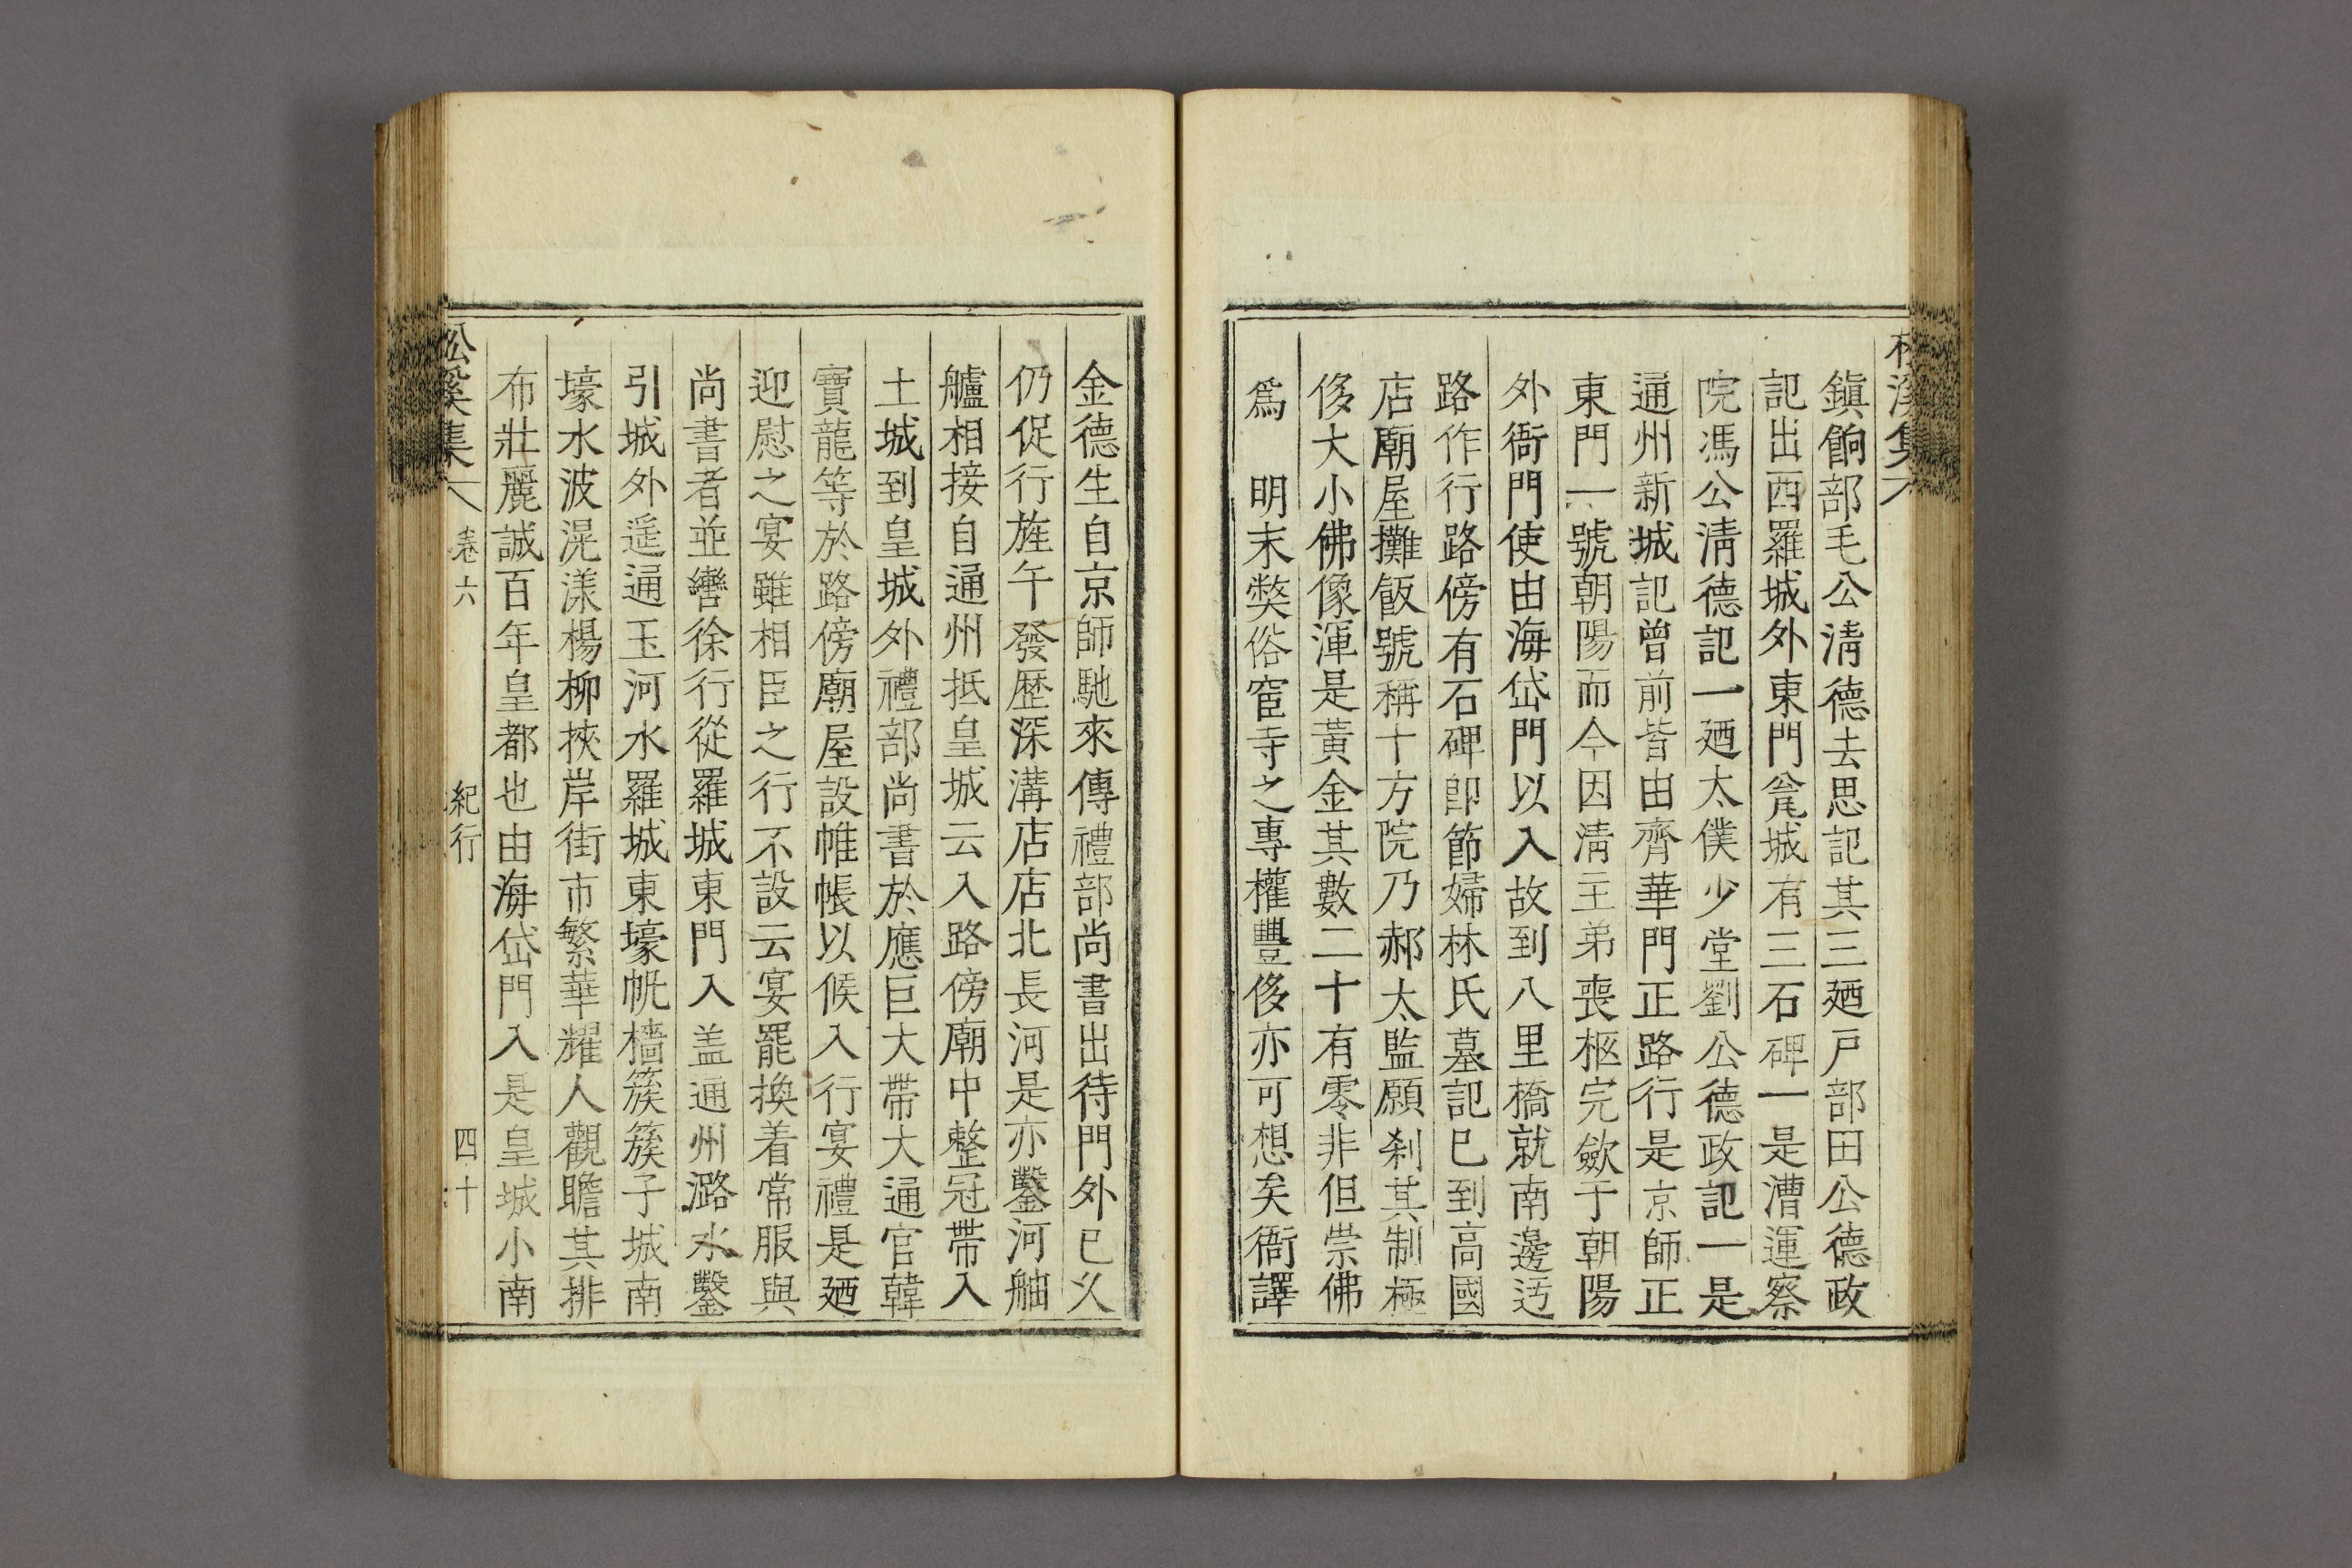 松溪集
鎭餉部毛公淸德去思記其三廼戶部田公德政
記出西羅城外東門瓮城有三石碑一是漕運察
院馮公淸德記一廼太僕少堂劉公德政記一是
通州新城記曾前皆由齊華門正路行是京師正
東門一號朝陽而今因淸主弟喪柩完斂于朝陽
外衙門使由海岱門以入故到八里橋就南邊迃
路作行路傍有石碑卽節婦林氏墓記已到高國
店廟屋攤飯號稱十方院乃郝太監願刹其制極
侈大小佛像渾是黃金其數二十有零非但崇佛
爲　明末獘俗宦寺之專權豐侈亦可想矣衙譯
金德生自京師馳來傳禮部尙書出待門外已久
仍促行旌午發歷深溝店店北長河是亦鑿河舳
艫相接自通州抵皇城云入路傍廟中整冠帶入
土城到皇城外禮部尙書於應巨大帶大通官韓
寶龍等於路傍廟屋設帷帳以候入行宴禮是廼
迎慰之宴雖相臣之行不設云宴罷換着常服與
尙書者並轡徐行從羅城東門入盖通州潞水鑿
引城外遥通玉河水羅城東壕帆檣簇簇子城南
壕水波滉漾楊柳挾岸街市繁華耀人觀瞻其排
布壯麗誠百年皇都也由海岱門入是皇城小南
松溪集　卷六　紀行　四十